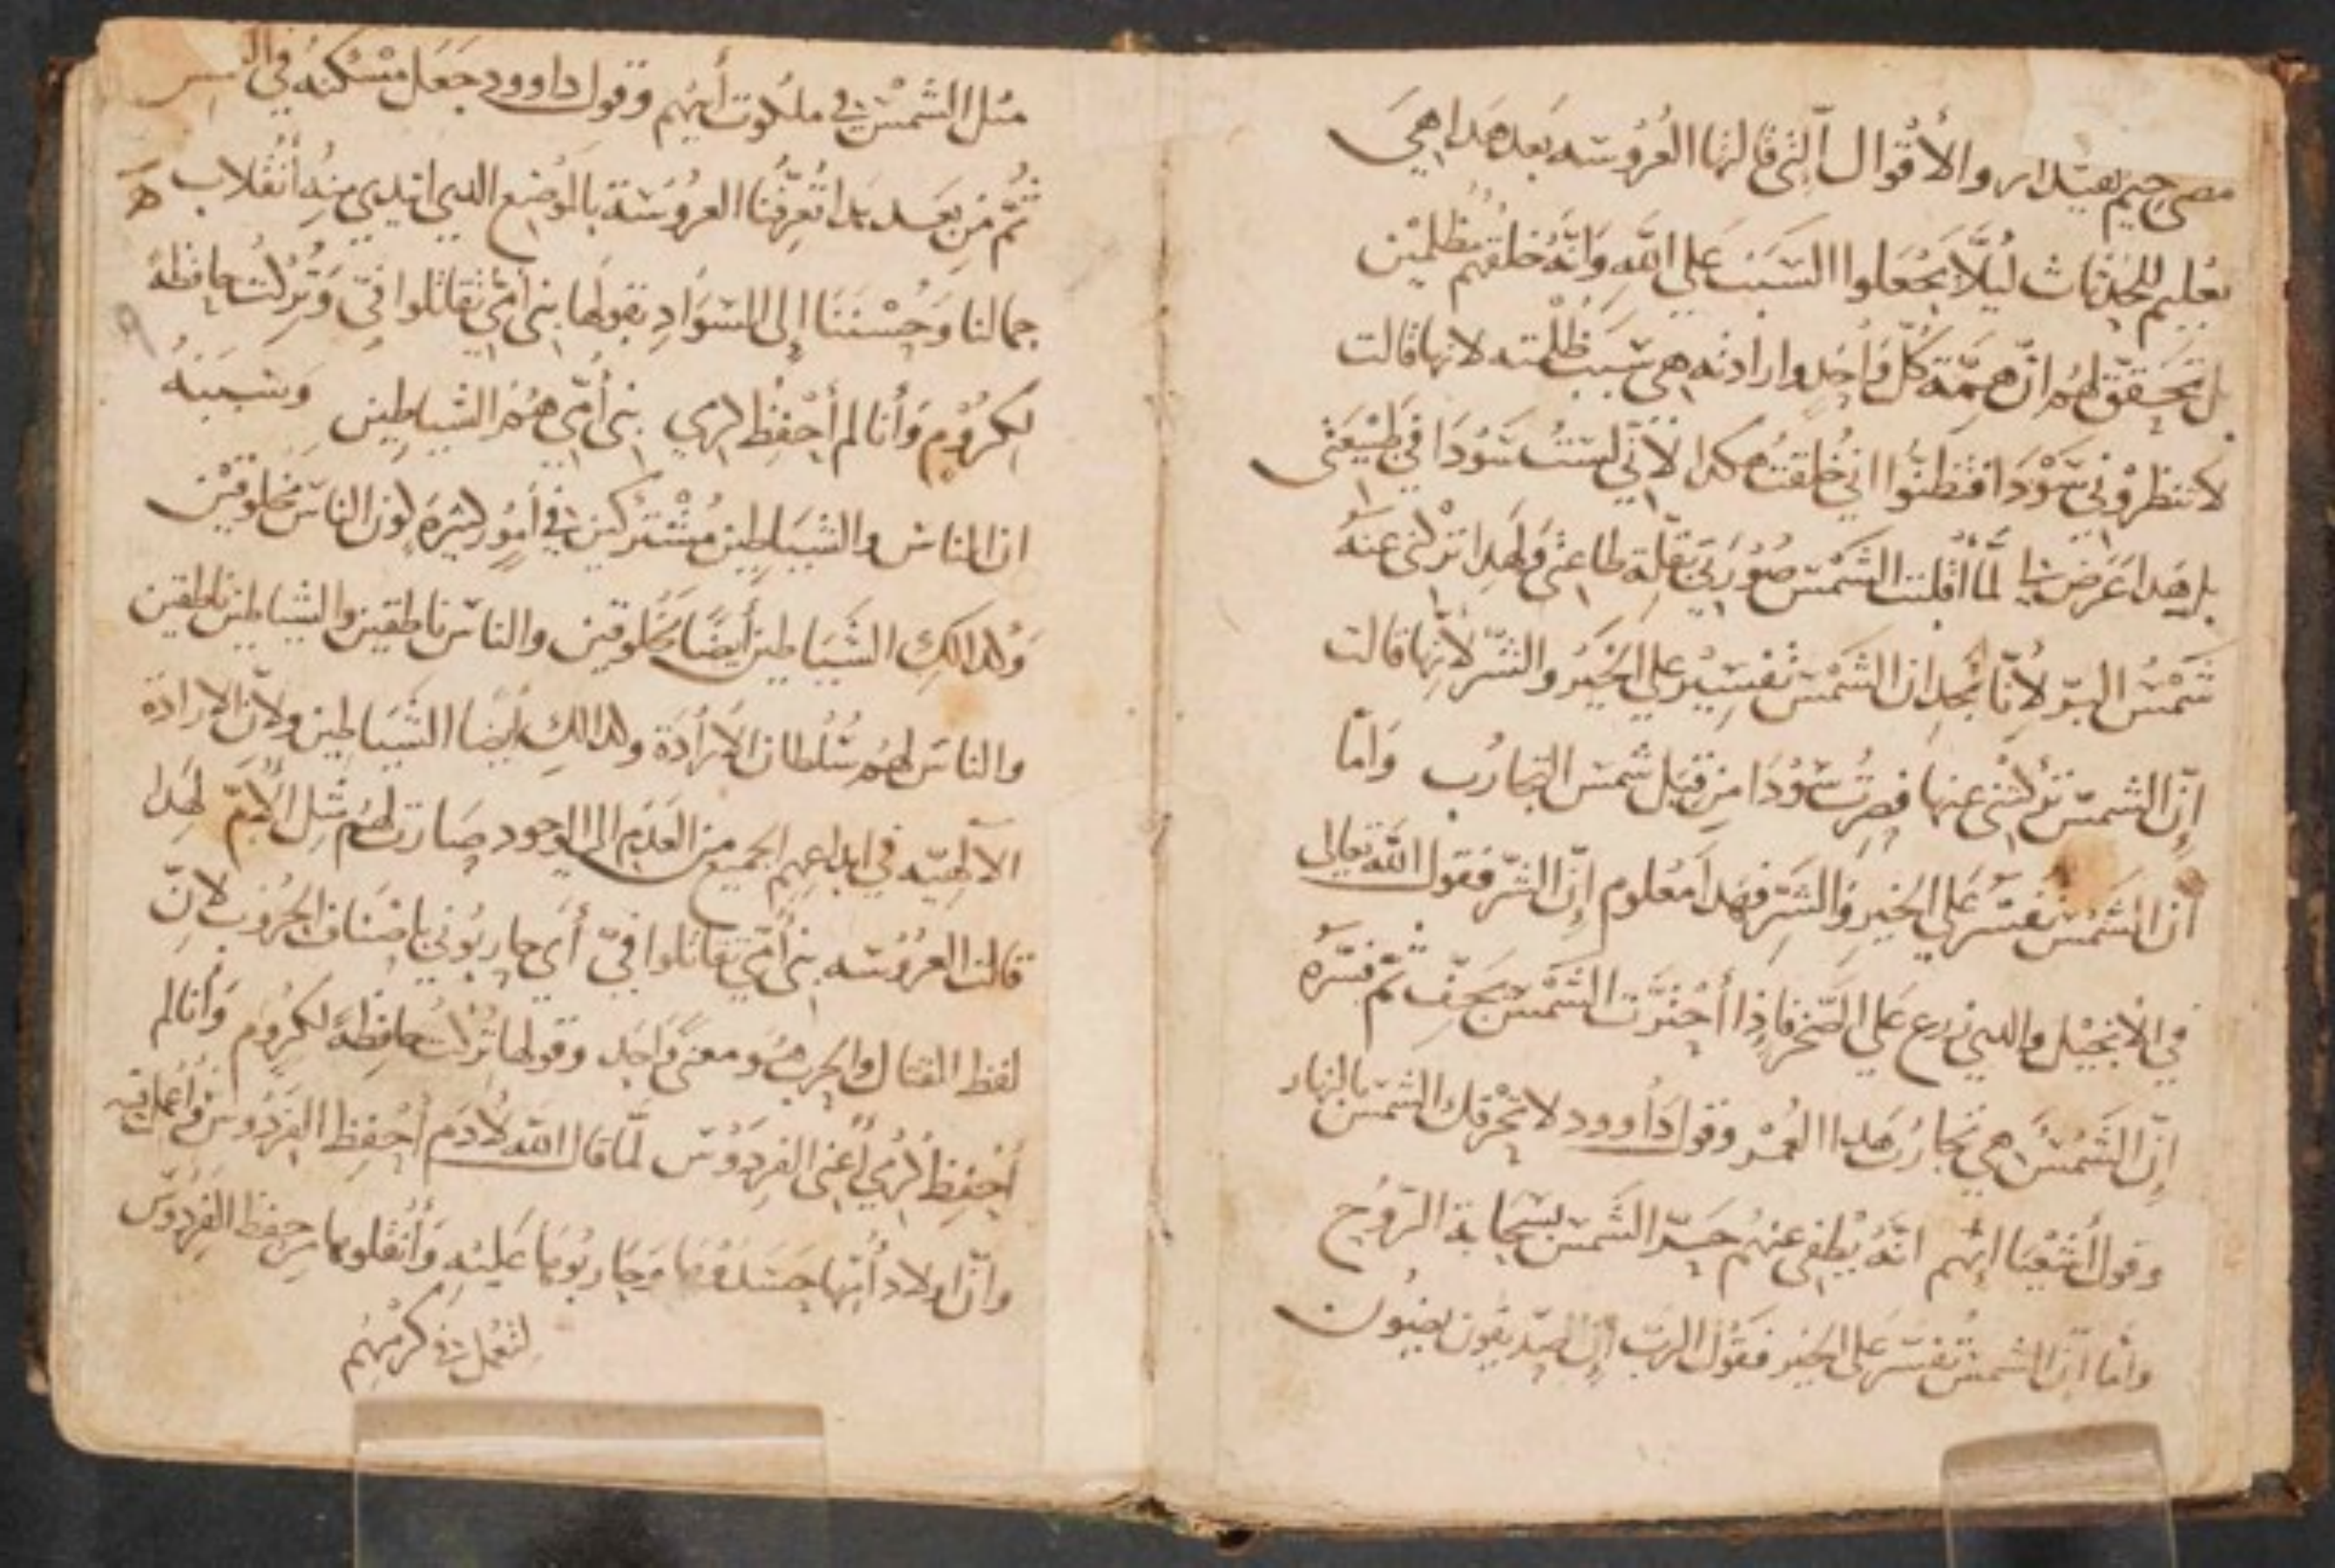 مصى جحيم بقيدار والأقوال الّتى قالتها العُرُوسَه بَعد هَدا هيَ
تعليم للحَدثات ليُلَّا يجْعَلوا السَبَب عَلي الله وَانّهُ خلقهم مُظلمين
بل تحَقق لهُم انّ همَّة كلّ وَاحِد وارادته هي سَبَب ظُلْمته لانها قالت
لا تنظروْني سَوْدَا فتظنّوا اني خُلقتُ هكدا لأنّي لسْتُ سَوْدَا في طَبيْعَتى
بل هَدا عَرَض لما اقلبت الشَمْس صُوْرَتي بقلّة طاعتى وَلهَدا تركنى عَنهُ
شَمْسُ البرّ لأنّا نجد ان الشَمْس تفسِيْر علي الخَيْر والشّر لأنها قالت
إنّ الشمسَ تركتنى عنها فصِرتُ سَوْدَا من قِبَل شمسَ التجارُب وَامّا
أن الشَمْسَ تفسّر عَلي الخير وَالشَر فهَدا مَعْلوم إنّ الشّر فقول الله تعالى
في الانجيْل والدي زرع عَلي الصَخر فاذا أحْترّت الشَمْسَ يجفّ ثم فسّرهُ
إنّ الشَمْسُ هي تجارُب هَدا العُمْر وقول دَاوود لا تحْرقك الشَمسَ بالنهار
وقول أشَعْيَا انهم انّهُ يُطفي عنهُم حَرّ الشَمس بسَحَابة الرّوُح
وامّا انّ الشمسَ تفسّر عَلي الخير فقوْل الربّ إنّ الصدّيقون يضيُون
مثل الشَمْسَ في ملكوت أبيهم وقول داوود جَعَل مَسْكنه في الشمس
ثُمّ مِن بَعَد هَدا تُعرّفنا العروُسَة بالمَوْضع الدي ابتدي منِهُ أنْقُلاب
جمالنا وَحُسْنَنا إلى السَوَادِ بقولها بنى أمّي تقاتلوا فيّ وَتُركت حافظهً
لكرُوُم وَأنا لم أحْفِظ كرمي بنى أمّي هُمُ الشياطين وَسَبَبهُ
ان الناسَ والشيَاطِين مُشْتركين في أمُور كثيرَهَ كون الناسَ مَخلوقيْن
وَكدالكِ الشَيَاطين أيضًا مَخلوقين والناسَ ناطقين والشيَاطين ناطقين
والناسَ لهُم سُلْطان الأرَادَة وكدالكِ ايضا الشَيَاطين ولأنّ الارادَة
الآلهيّه في ابداعِهِم الجميع من العَدَم إلى الوجود صارَت لهُم مثِل الأمّ لهَدا
قالت العروُسَه بنى أمّي تقاتلوا فيّ أي حاربُوني باصْناف الحُرُوب لانّ
لفظ القتال والحرب هُوَ معنىً وَاحَد وقولها تُركت حافِظهً لكروُم وَأنا لم
أحْفِظ كرْمي أعنى الفِردَوْسَ لمّا قال الله لآدَم أحْفِظ الفرْدَوْس وأعمل فيه
وانّ اولاد أُمّها حَسَدُوْهَا وَحَاربُوهَا عَليْهِ وَأنْقَلوها من حِفظ الفِرْدَوْسَ
لتعْمل في كرْمهُم